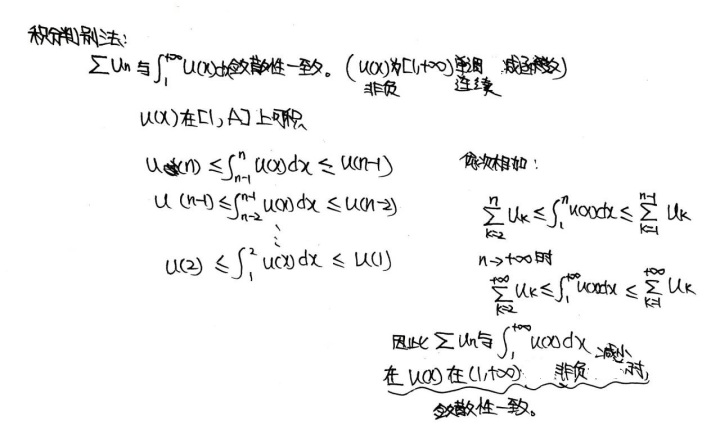 积分判别法:
∑Un 与 ∫₁^{+∞} U(x)dx 敛散性一致。(U(x)为[1,+∞) 非负 单调 连续 减函数)
U(x)在[1,A]上可积
U(n) ≤ ∫_{n-1}^{n} U(x)dx ≤ U(n-1)
U(n-1) ≤ ∫_{n-2}^{n-1} U(x)dx ≤ U(n-2)
⋮
U(2) ≤ ∫₁² U(x)dx ≤ U(1)
依次相加:
∑_{k=2}^{n} Uk ≤ ∫₁ⁿ U(x)dx ≤ ∑_{k=1}^{n-1} Uk
n→+∞时
∑_{k=2}^{+∞} Uk ≤ ∫₁^{+∞} U(x)dx ≤ ∑_{k=1}^{+∞} Uk
因此 ∑Un与 ∫₁^{+∞} U(x)dx
在 U(x) 在(1,+∞) 非负 减小 时,
敛散性一致。